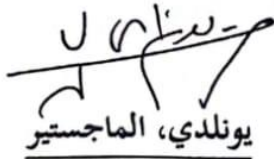 يونلدي، الماجستير